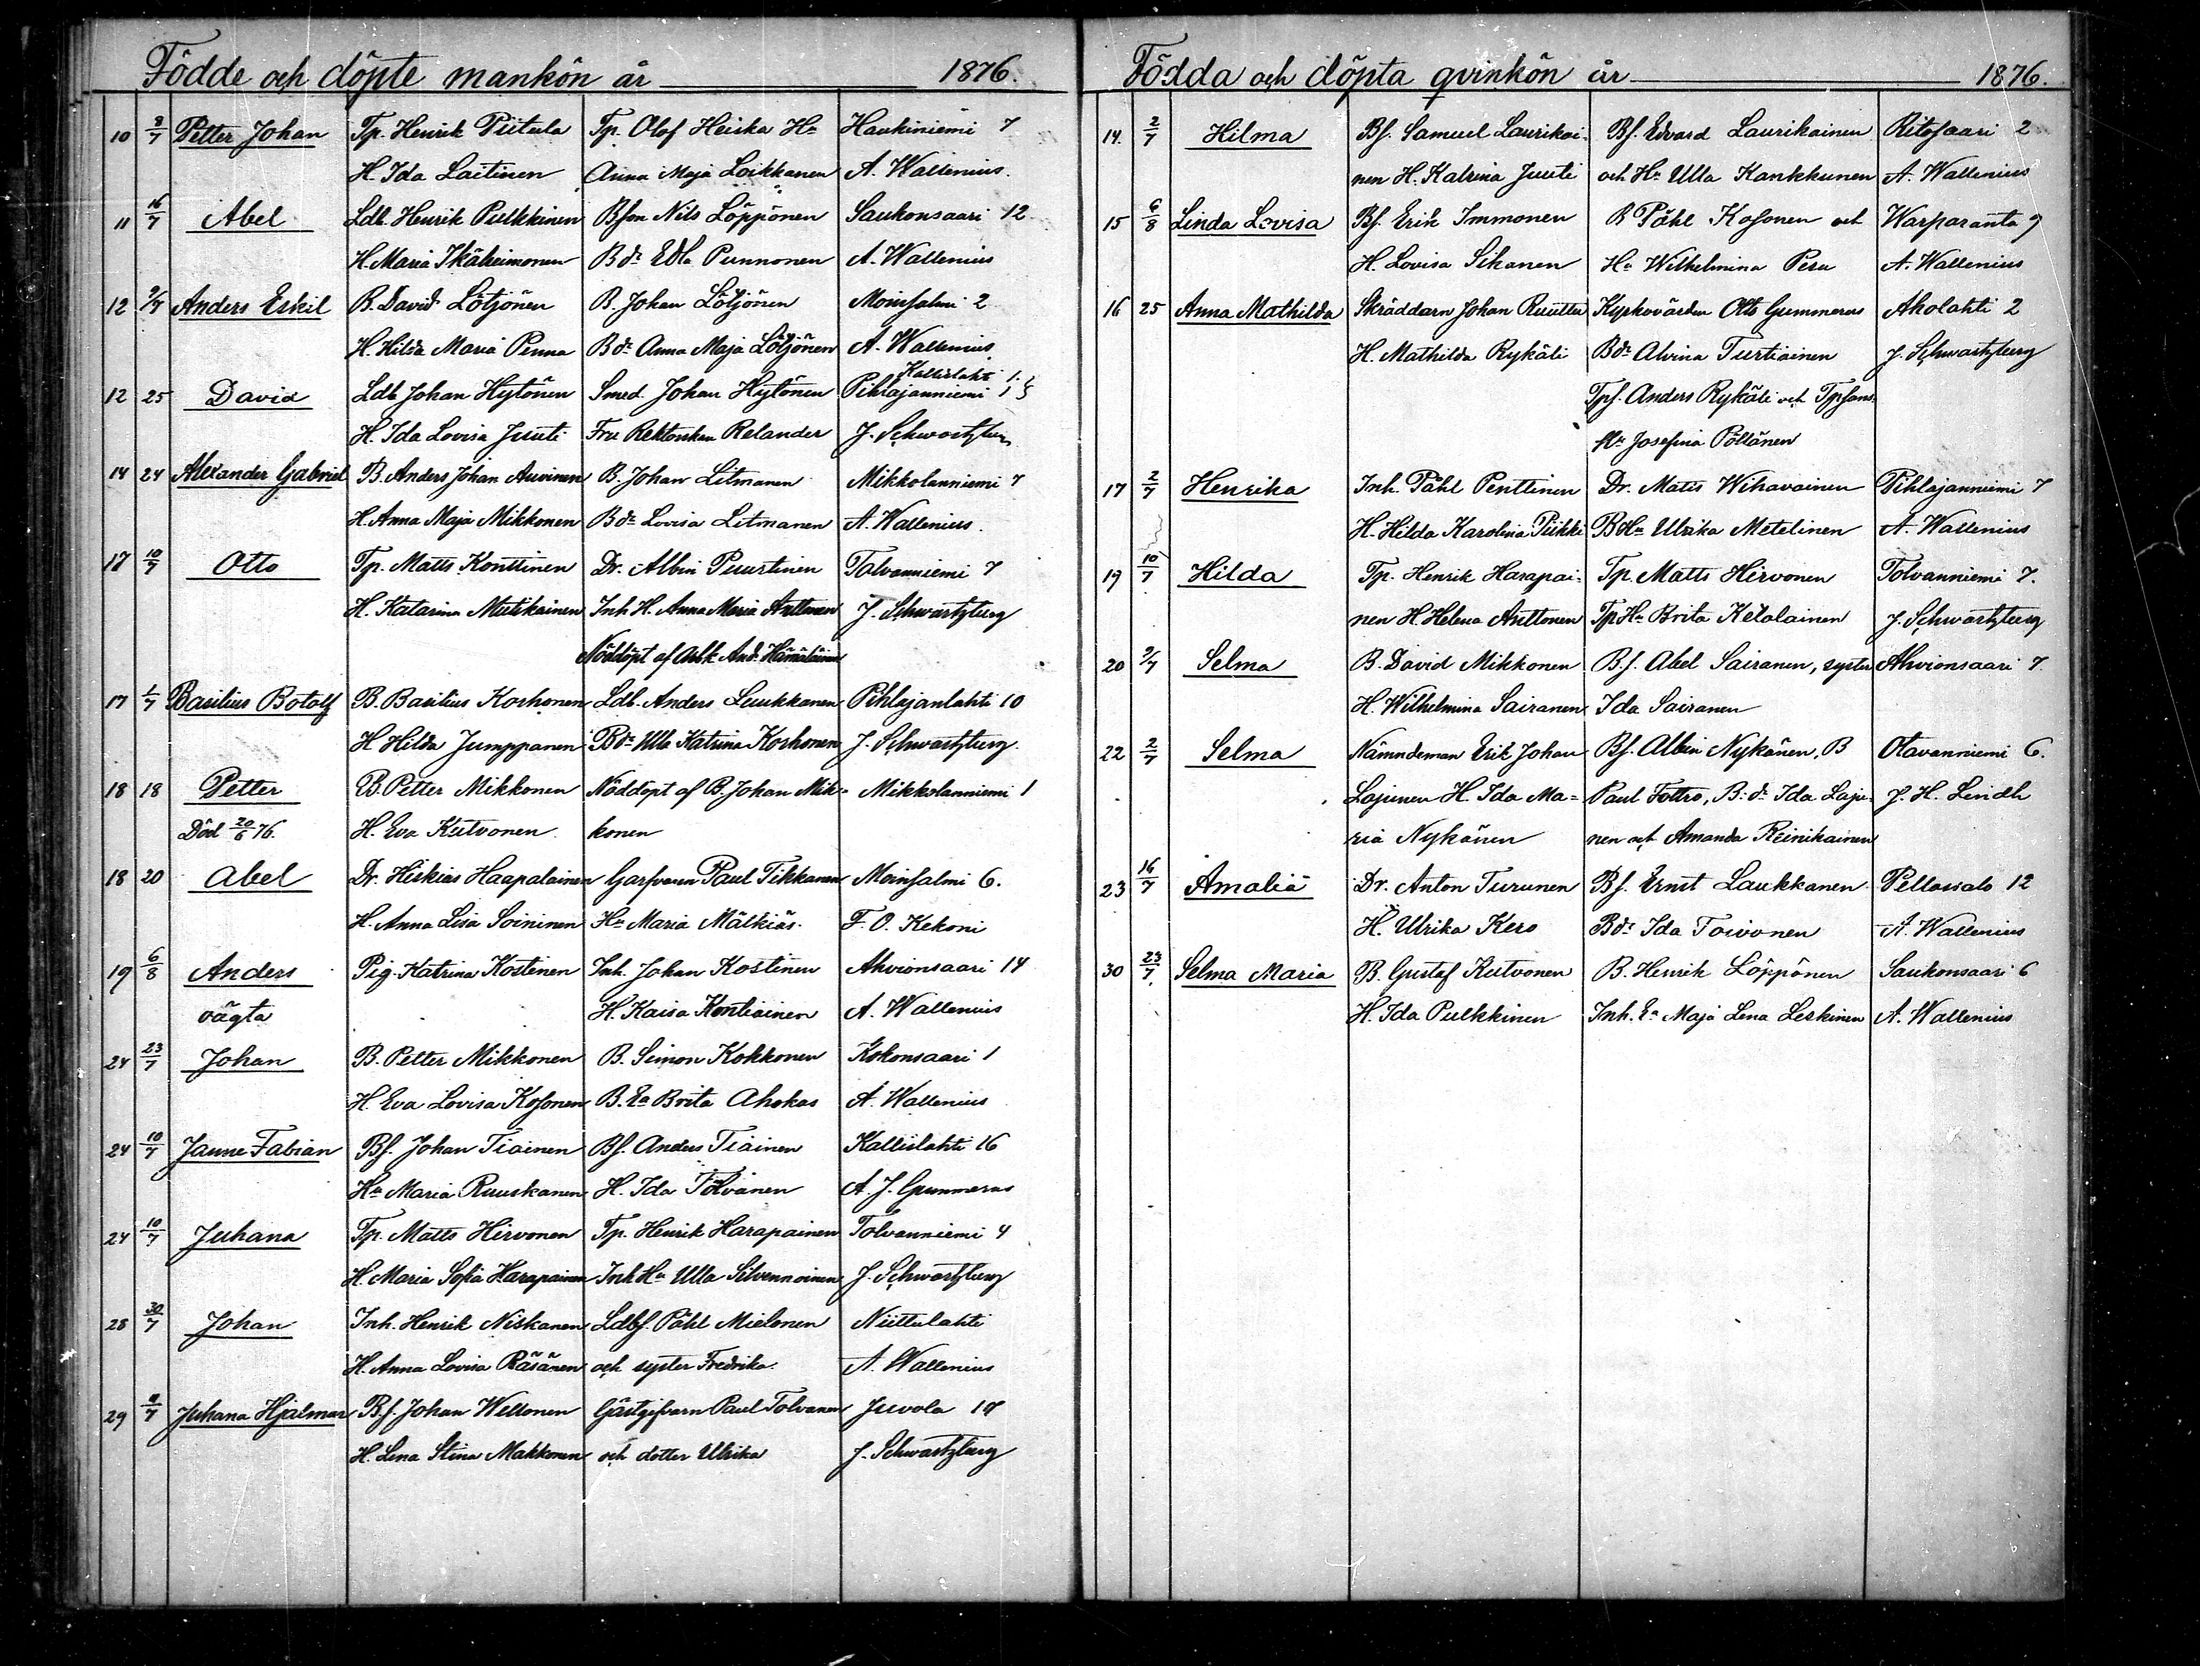 Födde och döpte mankön år 1876.
10 8/7 Petter Johan Tp. Henrik Piitula Tp. Olof Heiska Hu Haukiniemi 7
H. Ida Laitinen Anna Maja Loikkanen A. Wallenius.
11 16/7 Abel Ldb. Henrik Pulkkinen Bson Nils Löppönen Saukonsaari 12
H. Maria Ikäheimonen Bdr Edla Punnonen A. Wallenius
12 2/7 Anders Eskil B. David Lötjönen B. Johan Lötjönen Moinsalmi 2
H. Hilda Maria Penna Bdr Anna Maja Lötjönen A. Wallenius
12 25 David Ldb Johan Hytönen Smed. Johan Hytönen Kallislahti Pihlajanniemi 1
H. Ida Lovisa Juuti Fru Rektorskan Relander J. Schwartzberg
14 24 Alexander Gabriel B. Anders Johan Auvinen B. Johan Litmanen Mikkolanniemi 7
H. Anna Maja Mikkonen Bdr Lovisa Litmanen A. Wallenius.
17 10/7 Otto Tp. Matts Konttinen Dr. Albin Puurtinen Tolvanniemi 7
H. Katarina Mutikainen Inh H. Anna Maria Anttonen J. Schwartzberg
Nöddöpt af And. Hämäläinen
17 1/7 Basilius Botolf B. Basilius Korhonen Ldb. Anders Leukkanen Pihlajanlahti 10
H Hilda Jumppanen Bdr Ulla Katrina Korhonen J. Schwartzberg.
18 18 Petter B. Petter Mikkonen Nöddöpt af B. Johan Mik- Mikkolanniemi 1
Död 20/6 76. H. Eva Kutvonen konen
18 20 Abel Dr. Hiskias Haapalainen Garfvaren Paul Tikkanen Moinsalmi 6.
H. Anna Lisa Soininen Hu Maria Mälkiäs. F. O. Kekoni
19 6/8 Anders Pig. Katrina Kostinen Inh. Johan Kostinen Ahvionsaari 14
oägta H. Kaisa Kontiainen A. Wallenius
24 23/7 Johan B. Petter Mikkonen B. Simon Kokkonen Kokonsaari 1
H. Eva Lovisa Kosonen B. Ea Brita Ahokas A. Wallenius
24 10/7 Janne Fabian Bf. Johan Tiainen Bf. Anders Tiainen Kallislahti 16
Hu Maria Ruuskanen H. Ida Tolvanen A. J. Gummerus
24 10/7 Juhana Tp. Matts Hirvonen Tp. Henrik Harapainen Tolvanniemi 4
H. Maria Sofia Harapainen Inh Hu Ulla Silvennoinen J. Schwartzberg
28 30/7 Johan Inh. Henrik Niskanen Ldbf. Påhl Mielonen Niittulahti
H. Anna Lovisa Räsänen och syster Fredrika. A. Wallenius
29 Juhana Hjalmar Bf. Johan Wellonen Gästgifvarn Paul Tolvanen Juvola
H. Lena Stina Makkonen och dotter Ulrika J. Schwartzberg
Födda och döpta qvinkön år 1876.
14. 2/7 Hilma Bf. Samuel Laurikai- Bf. Edvard Laurikainen Ritosaari 2
nen H. Katrina Juuti och Hu Ulla Kankkunen A. Wallenius
15 6/8 Linda Lovisa Bf. Erik Immonen B Påhl Kosonen och Warparanta 9
H. Lovisa Sikanen Hu Wilhelmina Pesu A. Wallenius
16 25 Anna Mathilda Skräddarn Johan Ruutter Kyrkovärden Otto Gummerus Aholahti 2
H. Mathilda Rykäli Bdr Alvina Turtiainen J. Schwartzberg
Tpf. Anders Rykäli och Tpsons
Hu Josefina Pöllänen
17 2/7 Henrika Inh. Påhl Penttinen Dr. Matts Wihavainen Pihlajanniemi 7
H. Hilda Karolina Piikki B Hu Ulrika Metelinen A. Wallenius
19 10/7 Hilda Tp. Henrik Harapai- Tp. Matts Hirvonen Tolvanniemi 7.
nen H. Helena Anttonen Tp Hu Brita Ketolainen J. Schwartzberg
20 2/7 Selma B. David Mikkonen Bf. Abel Sairanen, syster Ahvionsaari 7.
H. Wilhelmina Sairanen Ida Sairanen
22 2/7 Selma Nämndeman Erik Johan Bf. Albin Nykänen, B Otavanniemi 6.
Lajunen H. Ida Ma= Paul Tottro, B: dr Ida Laju- J. H. Lindh
ria Nykänen nen och Amanda Reinikainen
23 16/7 Amalia Dr. Anton Turunen Bf. Ernst Laukkanen Pellossalo 12
H. Ulrika Kero Bdr Ida Toivonen A. Wallenius
30 23/7 Selma Maria B. Gustaf Kutvonen B. Henrik Löppönen Saukonsaari 6
H. Ida Pulkkinen Inh. Ea Maja Lena Leskinen A. Wallenius